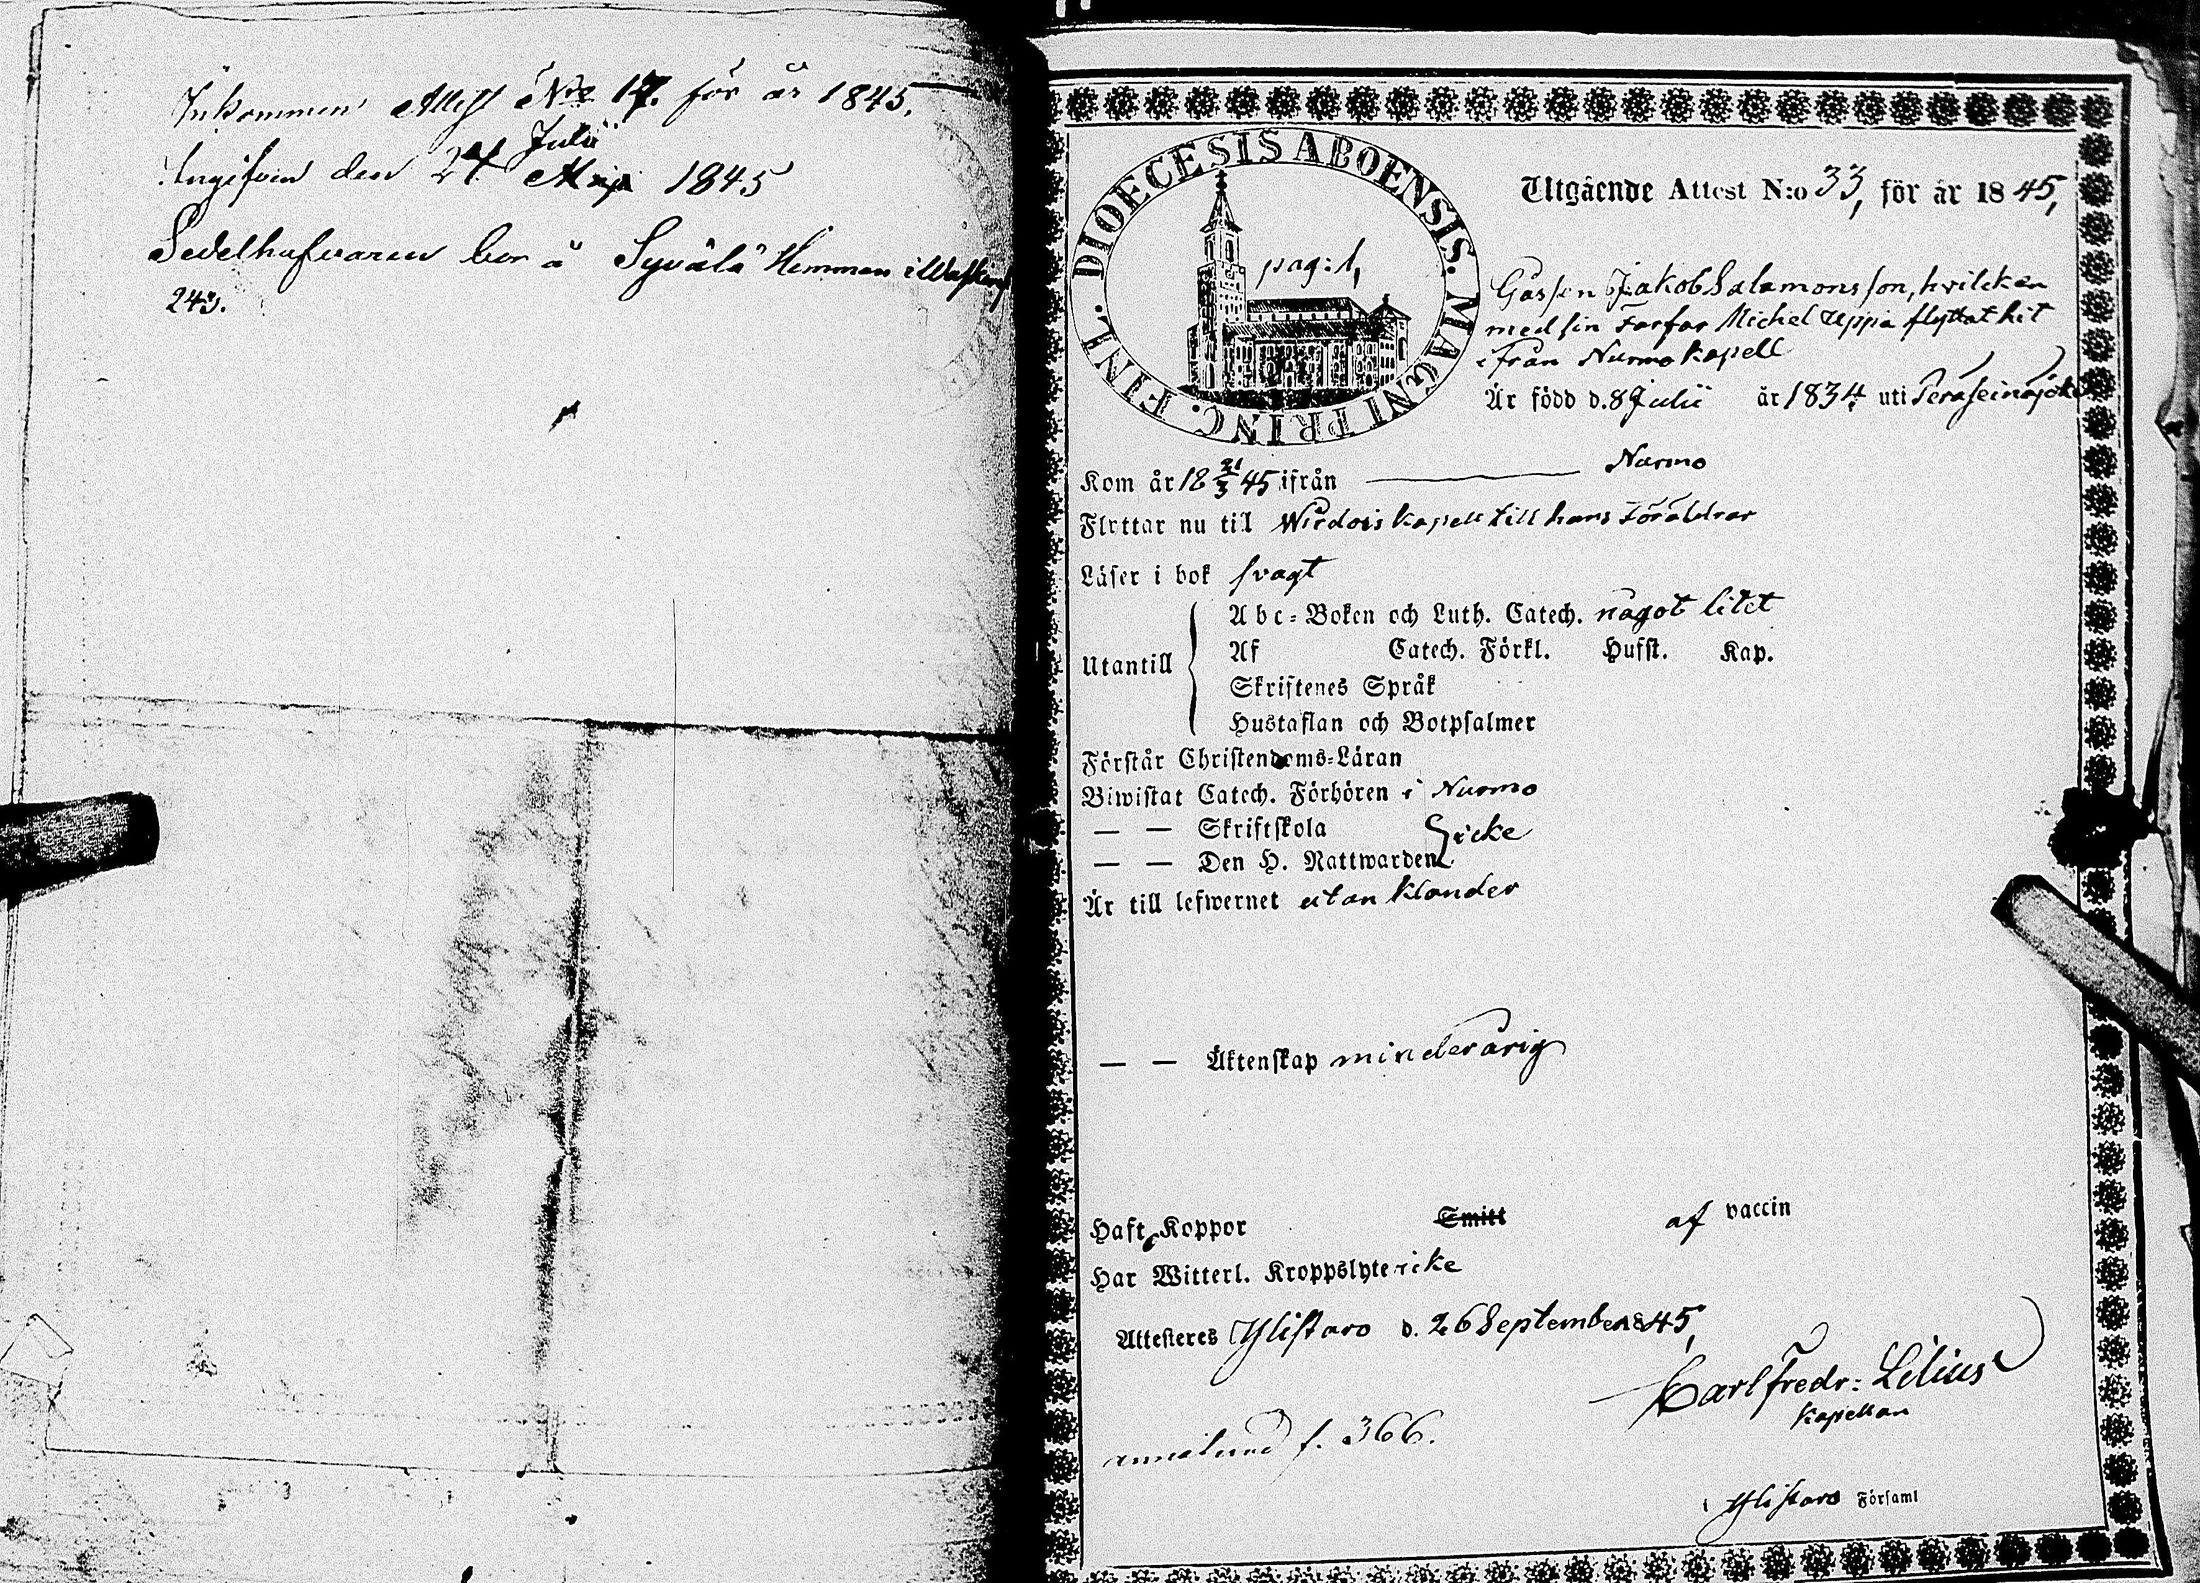 Inkommen Attest N:o 17. för år 1845.
Angifven den 24 Julii Maji 1845
Sedelhafvaren bor å Syvälä Hemman i
243.
DIOECESIS ABOENSIS. MAGNI PRINC. FINL.
pag: 1,
Utgående Attest N:o 33, för år 1845,
Gossen Jakob Salamonsson, hvilken
med sin Farfar Michel Uppa flyttat hit
ifrån Nurmo Kapell
Är född d. 8 Julii år 1834. uti Peraseinäjoki
Kom år 18 21/3 45 ifrån Nurmo
Flyttar nu til Wirdois Kapell till hans Föräldrar
Läser i bok svagt
Utantill
Abc-Boken och Luth. Catech. något litet
Af Catech. Förkl. Hufst. Kap.
Skriftenes Språk
Hustaflan och Botpsalmer
Förstår Christendoms-Läran
Biwistat Catech. Förhören i Nurmo
— — Skriftskola icke
— — Den H. Nattwarden
Är till lefwernet utan klander
— — Äktenskap minderårig
Haft Koppor Smitt af vaccin
Har Witterl. Kroppslyte icke
Attesteres Ylistaro d. 26 September 1845,
Carl Fredr: Lilius
Kapellan
f. 366.
i Ylistaro Församl